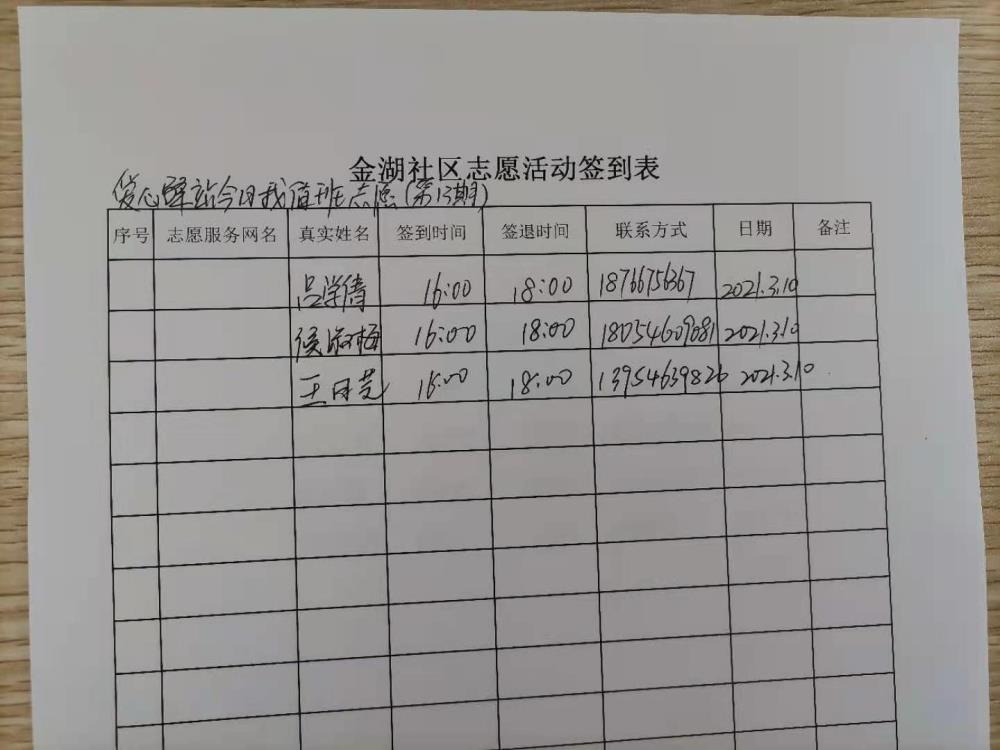 金湖社区志愿活动签到表
爱心驿站今日我值班志愿(第13期)
序号 志愿服务网名 真实姓名 签到时间 签退时间 联系方式 日期 备注
吕学倩 16:00 18:00 18766756367 2021.3.10
侯海梅 16:00 18:00 18054609081 2021.3.10
王月芝 16:00 18:00 13954639826 2021.3.10